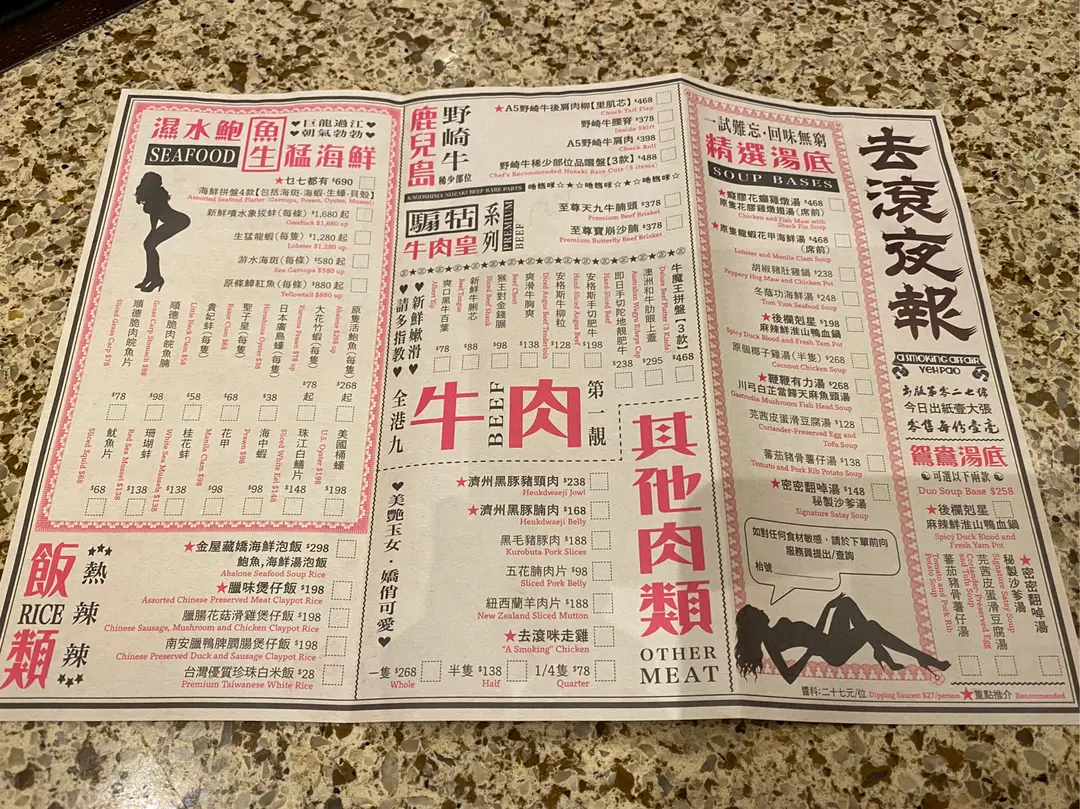 濕水鮑魚
生猛海鮮
SEAFOOD
♥巨龍過江♥
♥朝氣勃勃♥
★乜七都有 $690
海鮮拼盤4款【包括海斑·海蝦·生蠔·貝類】
Assorted Seafood Platter (Garoupa, Prawn, Oyster, Mussel)
新鮮噴水象拔蚌(每條) $1,680 起
Geoduck $1,680 up
生猛龍蝦(每隻) $1,280 起
Lobster $1,280 up
游水海斑(每條) $580 起
Sea Garoupa $580 up
原條鰤魚(每條) $880 起
Yellowtail $880 up
原隻活鮑魚(每隻) $268
Abalone $268 up
大花竹蝦(每隻) $78
Kuruma Prawn $78 up
日本廣島蠔(每隻) $38
Hiroshima Oyster $38
聖子皇(每隻) $68
Razor Clam $68
貴妃蚌(每隻) $58
Little Neck Clam $58
順德脆肉皖魚腩 $98
Grass Carp Stomach $98
順德脆肉皖魚片 $78
Sliced Grass Carp $78
美國桶蠔 $198
U.S. Oyster $198
珠江白鱔片 $148
Sliced White Eel $148
海中蝦 $98
Prawn $98
花甲 $98
Manila Clam $98
桂花蚌 $138
White Sea Mussels $138
珊瑚蚌 $138
Red Sea Mussel $138
魷魚片 $68
Sliced Squid $68
飯類
RICE
熱辣辣
★金屋藏嬌海鮮泡飯 $298
鮑魚,海鮮湯泡飯
Abalone Seafood Soup Rice
★臘味煲仔飯 $198
Assorted Chinese Preserved Meat Claypot Rice
臘腸花菇滑雞煲仔飯 $198
Chinese Sausage, Mushroom and Chicken Claypot Rice
南安臘鴨髀膶腸煲仔飯 $198
Chinese Preserved Duck and Sausage Claypot Rice
台灣優質珍珠白米飯 $28
Premium Taiwanese White Rice
鹿兒島
野崎牛
稀少部位
KAGOSHIMA NOZAKI BEEF RARE PARTS
★A5野崎牛後肩肉柳【里肌芯】 $468
Chuck Tail Flap
野崎牛腰脊 $378
Inside Skirt
A5野崎牛肩肉 $398
Chuck Roll
野崎牛稀少部位品嚐盤【3款】 $488
Chef's Recommended Nozaki Rare Cuts (3 items)
騸牯
牛肉皇
系列
PREMIUM BEEF
至尊天九牛腩頭 $378
Premium Beef Brisket
至尊寶崩沙腩 $378
Premium Butterfly Beef Brisket
牛魔王拼盤【3款】 $468
澳洲和牛肋眼上蓋 $295
Australian Wagyu Ribeye Cap
即日手切陀地靚肥牛 $238
Hand-Sliced Beef
安格斯手切肥牛 $198
Hand-Sliced Angus Beef
安格斯牛柳粒 $128
Diced Angus Beef Tenderloin
爽滑牛胸 $138
Beef Chest
猴王對金錢𦟌 $98
Sliced Beef Shank
新鮮牛脷芯 $88
Beef Tongue
爽口黑牛百葉 $78
♥新鮮嫩滑♥
♥請多指教♥
全港九
牛肉
BEEF
第一靚
♥美艷玉女·嬌俏可愛♥
★濟州黑豚豬頸肉 $238
Heukdwaeji Jowl
★濟州黑豚腩肉 $168
Heukdwaeji Belly
黑毛豬肉 $188
Kurobuta Pork Slices
五花腩肉片 $98
Sliced Pork Belly
紐西蘭羊肉片 $188
New Zealand Sliced Mutton
★去滾咪走雞
"A Smoking" Chicken
一隻 $268 半隻 $138 1/4隻 $78
Whole Half Quarter
其他肉類
OTHER MEAT
一試難忘·回味無窮
精選湯底
SOUP BASES
★癡膠花癲雞燉湯 $468
原隻花膠雞燉翅湯(席前)
Chicken and Fish Maw with
Shark Fin Soup
★原隻龍蝦花甲海鮮湯 $468
(席前)
Lobster and Manila Clam Soup
胡椒豬肚雞鍋 $238
Peppery Hog Maw and Chicken Pot
冬蔭功海鮮湯 $248
Tom Yum Seafood Soup
★後欄剋星 $198
麻辣鮮淮山鴨血鍋
Spicy Duck Blood and Fresh Yam Pot
原個椰子雞湯(半隻) $268
Coconut Chicken Soup
★鞭鞭有力湯 $268
川芎白芷當歸天麻魚頭湯
Gastrodia Mushroom Fish Head Soup
芫茜皮蛋滑豆腐湯 $128
Coriander-Preserved Egg and
Tofu Soup
蕃茄豬骨薯仔湯 $138
Tomato and Pork Rib Potato Soup
★密密翻啅湯 $148
秘製沙爹湯
Signature Satay Soup
如對任何食材敏感,請於下單前向
服務員提出/查詢
枱號
去滾夜報
A SMOKING AFFAIR
YEH PAO
出版第零二七號
今日出紙壹大張
零售每份壹毫
鴛鴦湯底
☯可選以下兩款☯
Duo Soup Base $258
★後欄剋星
麻辣鮮淮山鴨血鍋
Spicy Duck Blood and
Fresh Yam Pot
★密密翻啅湯
秘製沙爹湯
Signature Satay Soup
芫茜皮蛋滑豆腐湯
Coriander-Preserved Egg
and Tofu Soup
蕃茄豬骨薯仔湯
Tomato and Pork Rib
Potato Soup
醬料:二十七元/位 Dipping Sauces: $27/person ★重點推介 Recommended